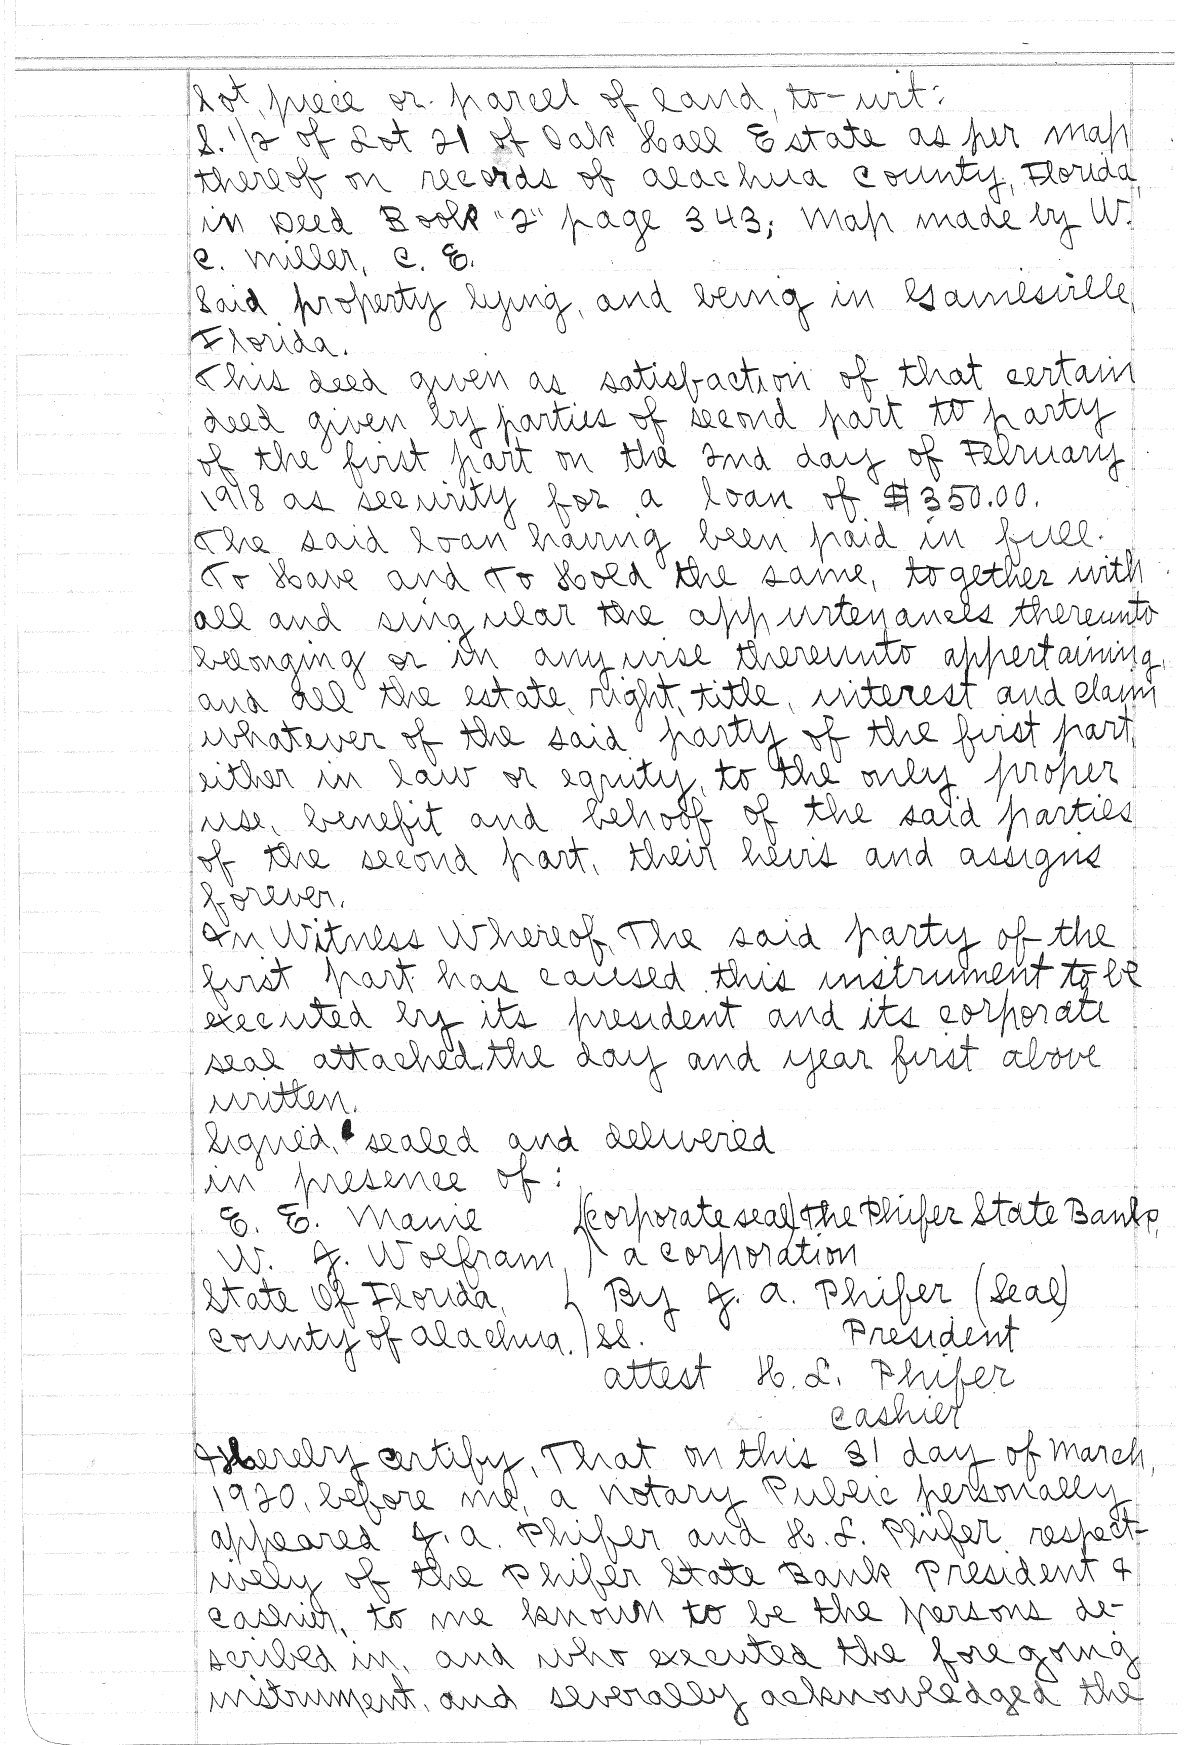 Lot, piece or parcel of land, to-wit:
S. 1/2 of Lot 21 of Oak Hall Estate as per map
thereof on records of Alachua County, Florida,
in Deed Book "2" page 343; Map made by W.
C. Miller, C. E.
Said property lying, and being in Gainesville,
Florida.
This deed given as satisfaction of that certain
deed given by parties of second part to party
of the first part on the 2nd day of February
1918 as security for a loan of $350.00.
The said loan having been paid in full.
To Have and To Hold the same, together with
all and singular the appurtenances thereunto
belonging or in anywise thereunto appertaining,
and all the estate, right, title, interest and claim
whatever of the said party of the first part,
either in law or equity, to the only proper
use, benefit and behoof of the said parties
of the second part, their heirs and assigns
forever.
In Witness Whereof, The said party of the
first part has caused this instrument to be
executed by its president and its corporate
seal attached, the day and year first above
written.
Signed, sealed and delivered
in presence of:
E. E. Manie (Corporate seal) The Phifer State Bank,
W. J. Wolfram, a corporation
State Of Florida, By J. A. Phifer (Seal)
County of Alachua. ss. President
Attest H. L. Phifer
Cashier
I Hereby Certify, That on this 31 day of March,
1920, before me, a Notary Public personally
appeared J. A. Phifer and H. L. Phifer respect-
ively of the Phifer State Bank President &
Cashier, to me known to be the persons de-
scribed in, and who executed the foregoing
instrument, and severally acknowledged the